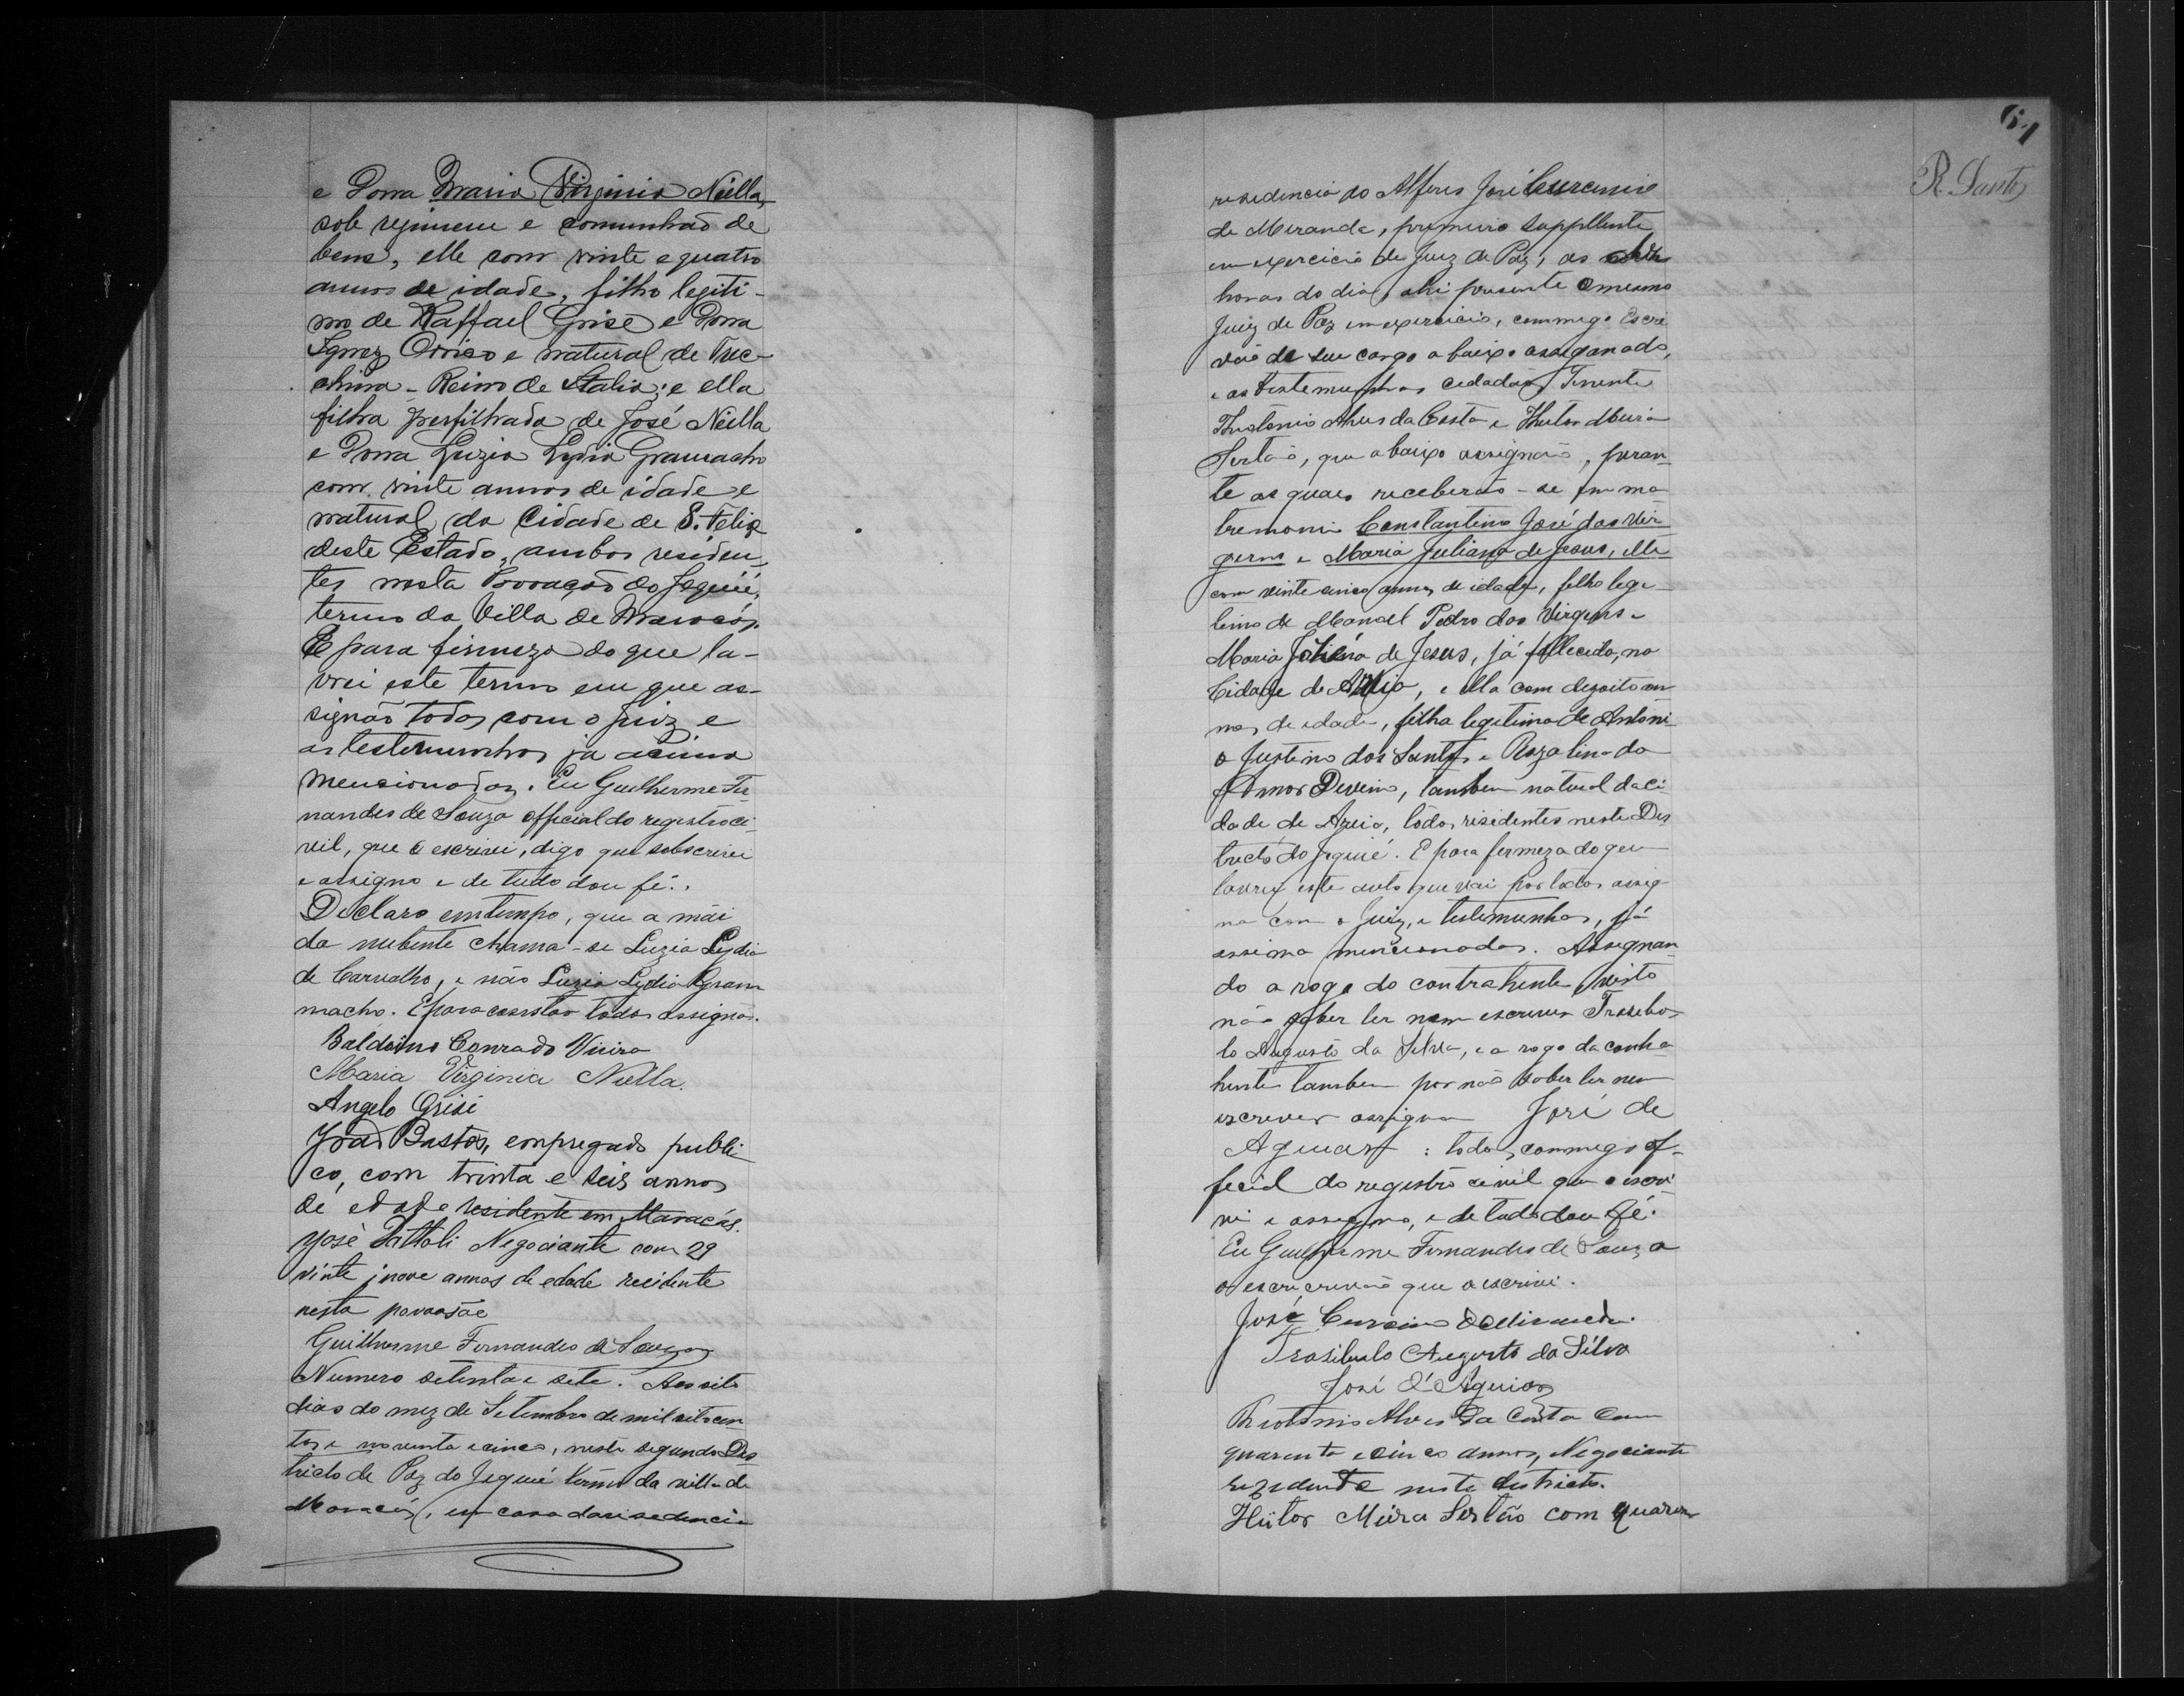 e Dona Maria Virginia Niella,
sob regimem e comunhão de
bens, elle com vinte e quatro
annos de idade, filho legiti-
mo de Raffael Grise e Dona
Ignez Orrico e natural de Trec-
china - Reino de Italia; e ella
filha perfilhada de José Niella
e Dona Luzia Lydia Gramacho
com vinte annos de idade e
natural da Cidade de S. Felix
deste Estado, ambos residen-
tes nesta Povoação do Jequié,
termo da Villa de Maracás.
E para firmeza do que la-
vrei este termo em que as-
signão todos com o Juiz e
as testemunhas ja acima
mencionadas. Eu Guilherme Fer
nandes de Souza official do registro ci-
vil, que o escrivi, digo que subscrivi
e assigno e de tudo dou fé.
Declaro em tempo, que a mãi
da nubente chama-se Luzia Lydia
de Carvalho, e não Luzia Lydia Gram
macho. E para constar todos assignão.
Baldoino Conrado Vieira
Maria Virginia Niella.
Angelo Grisi
João Bastos, empregado publi-
co, com trinta e seis annos
de edade residente em Maracás.
José Pattoli Negociante com 29
vinte j nove annos de edade recidente
nesta povoasão
Guilherme Fernandes de Souza
Numero setenta e sete. Aos sete
dias do mez de Setembro de mil oitocen
tos e noventa e cinco, neste segundo Dis
tricto de Paz do Jequié termo da villa de
Maracás, em casa da residencia
61
R. Santos
residencia do Alferes José
de Miranda, primeiro supplente
em exercicio de Juiz de Paz, as
horas do dia, ahi presente o mesmo
Juiz de Paz em exercicio, commigo Escri
vão de seu cargo a baixo assignado,
e as testemunhas cidadãos Tenente
Theotonio Alves da Costa e Heitor Meira
Sertão, que a baixo assignão, peran
te as quaes receberão-se em ma
tremonio Constantino José das Vir
gens e Maria Juliana de Jesus, elle
com vinte cinco annos de idade, filho lege
timo de Manoel Pedro das Virgens e
Maria de Jesus, já fallecida, na
Cidade de Areia, e ella com dezoito an
nos de idade, filha legetima de Antoni
o Justino dos Santos e Rozalina do
Amor Devino, tambem natural da Ci
dade de Areia, todos residentes neste Des
tricto do Jequié. E para fermeza do que
lavrei este auto que vai por todos assig
na com o Juiz, e testemunhas, já
assima mencionadas. Assignan
do a rogo do contrahente visto
não saber ler nem escrever Trasebo-
lo Augusto da Silva, e a rogo da contra
hente tambem por não saber ler nem
escrever assigna José de
Aguiar: todos commego of-
ficial do registro civil que o escri
vi e assigno, e de tudo dou fé.
Eu Guilherme Fernandes de Souza
o que o escrivi.
José de Miranda.
Trasibulo Augusto da Silva
José d'Aguiar
Theotonio Alves da Costa Com
quarenta e cinco annos, Negociante
rezidente neste districto.
Heitor Meira Sertão com quaren